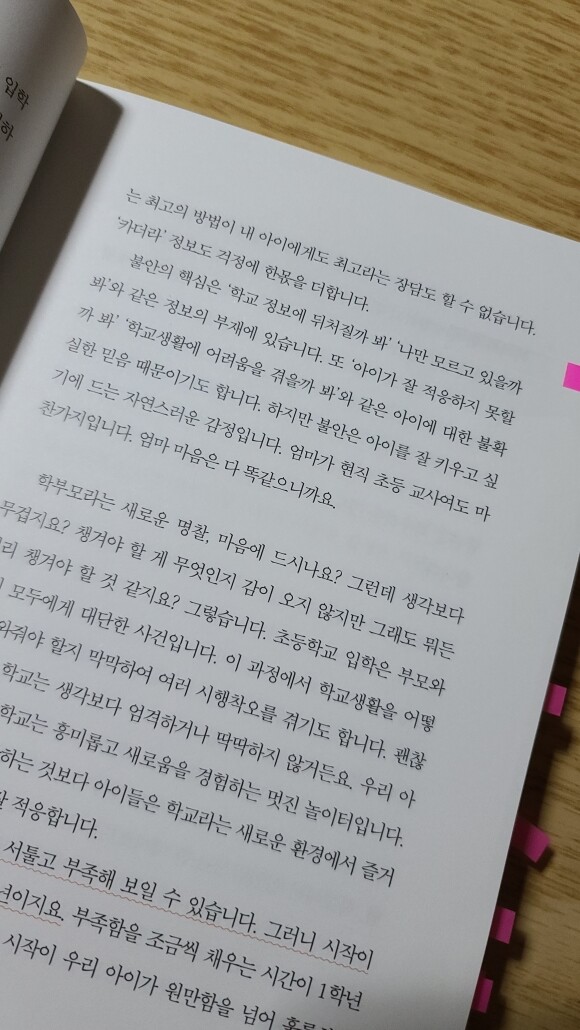 입학
는 최고의 방법이 내 아이에게도 최고라는 장담도 할 수 없습니다.
'카더라' 정보도 걱정에 한몫을 더합니다.
불안의 핵심은 '학교 정보에 뒤처질까 봐' '나만 모르고 있을까
봐'와 같은 정보의 부재에 있습니다. 또 '아이가 잘 적응하지 못할
까 봐' '학교생활에 어려움을 겪을까 봐'와 같은 아이에 대한 불확
실한 믿음 때문이기도 합니다. 하지만 불안은 아이를 잘 키우고 싶
기에 드는 자연스러운 감정입니다. 엄마가 현직 초등 교사여도 마
찬가지입니다. 엄마 마음은 다 똑같으니까요.
학부모라는 새로운 명찰, 마음에 드시나요? 그런데 생각보다
무겁지요? 챙겨야 할 게 무엇인지 감이 오지 않지만 그래도 뭐든
챙겨야 할 것 같지요? 그렇습니다. 초등학교 입학은 부모와
모두에게 대단한 사건입니다. 이 과정에서 학교생활을 어떻
와줘야 할지 막막하여 여러 시행착오를 겪기도 합니다. 괜찮
학교는 생각보다 엄격하거나 딱딱하지 않거든요. 우리 아
학교는 흥미롭고 새로움을 경험하는 멋진 놀이터입니다.
하는 것보다 아이들은 학교라는 새로운 환경에서 즐거
적응합니다.
서툴고 부족해 보일 수 있습니다. 그러니 시작이
년이지요. 부족함을 조금씩 채우는 시간이 1학년
시작이 우리 아이가 원만함을 넘어